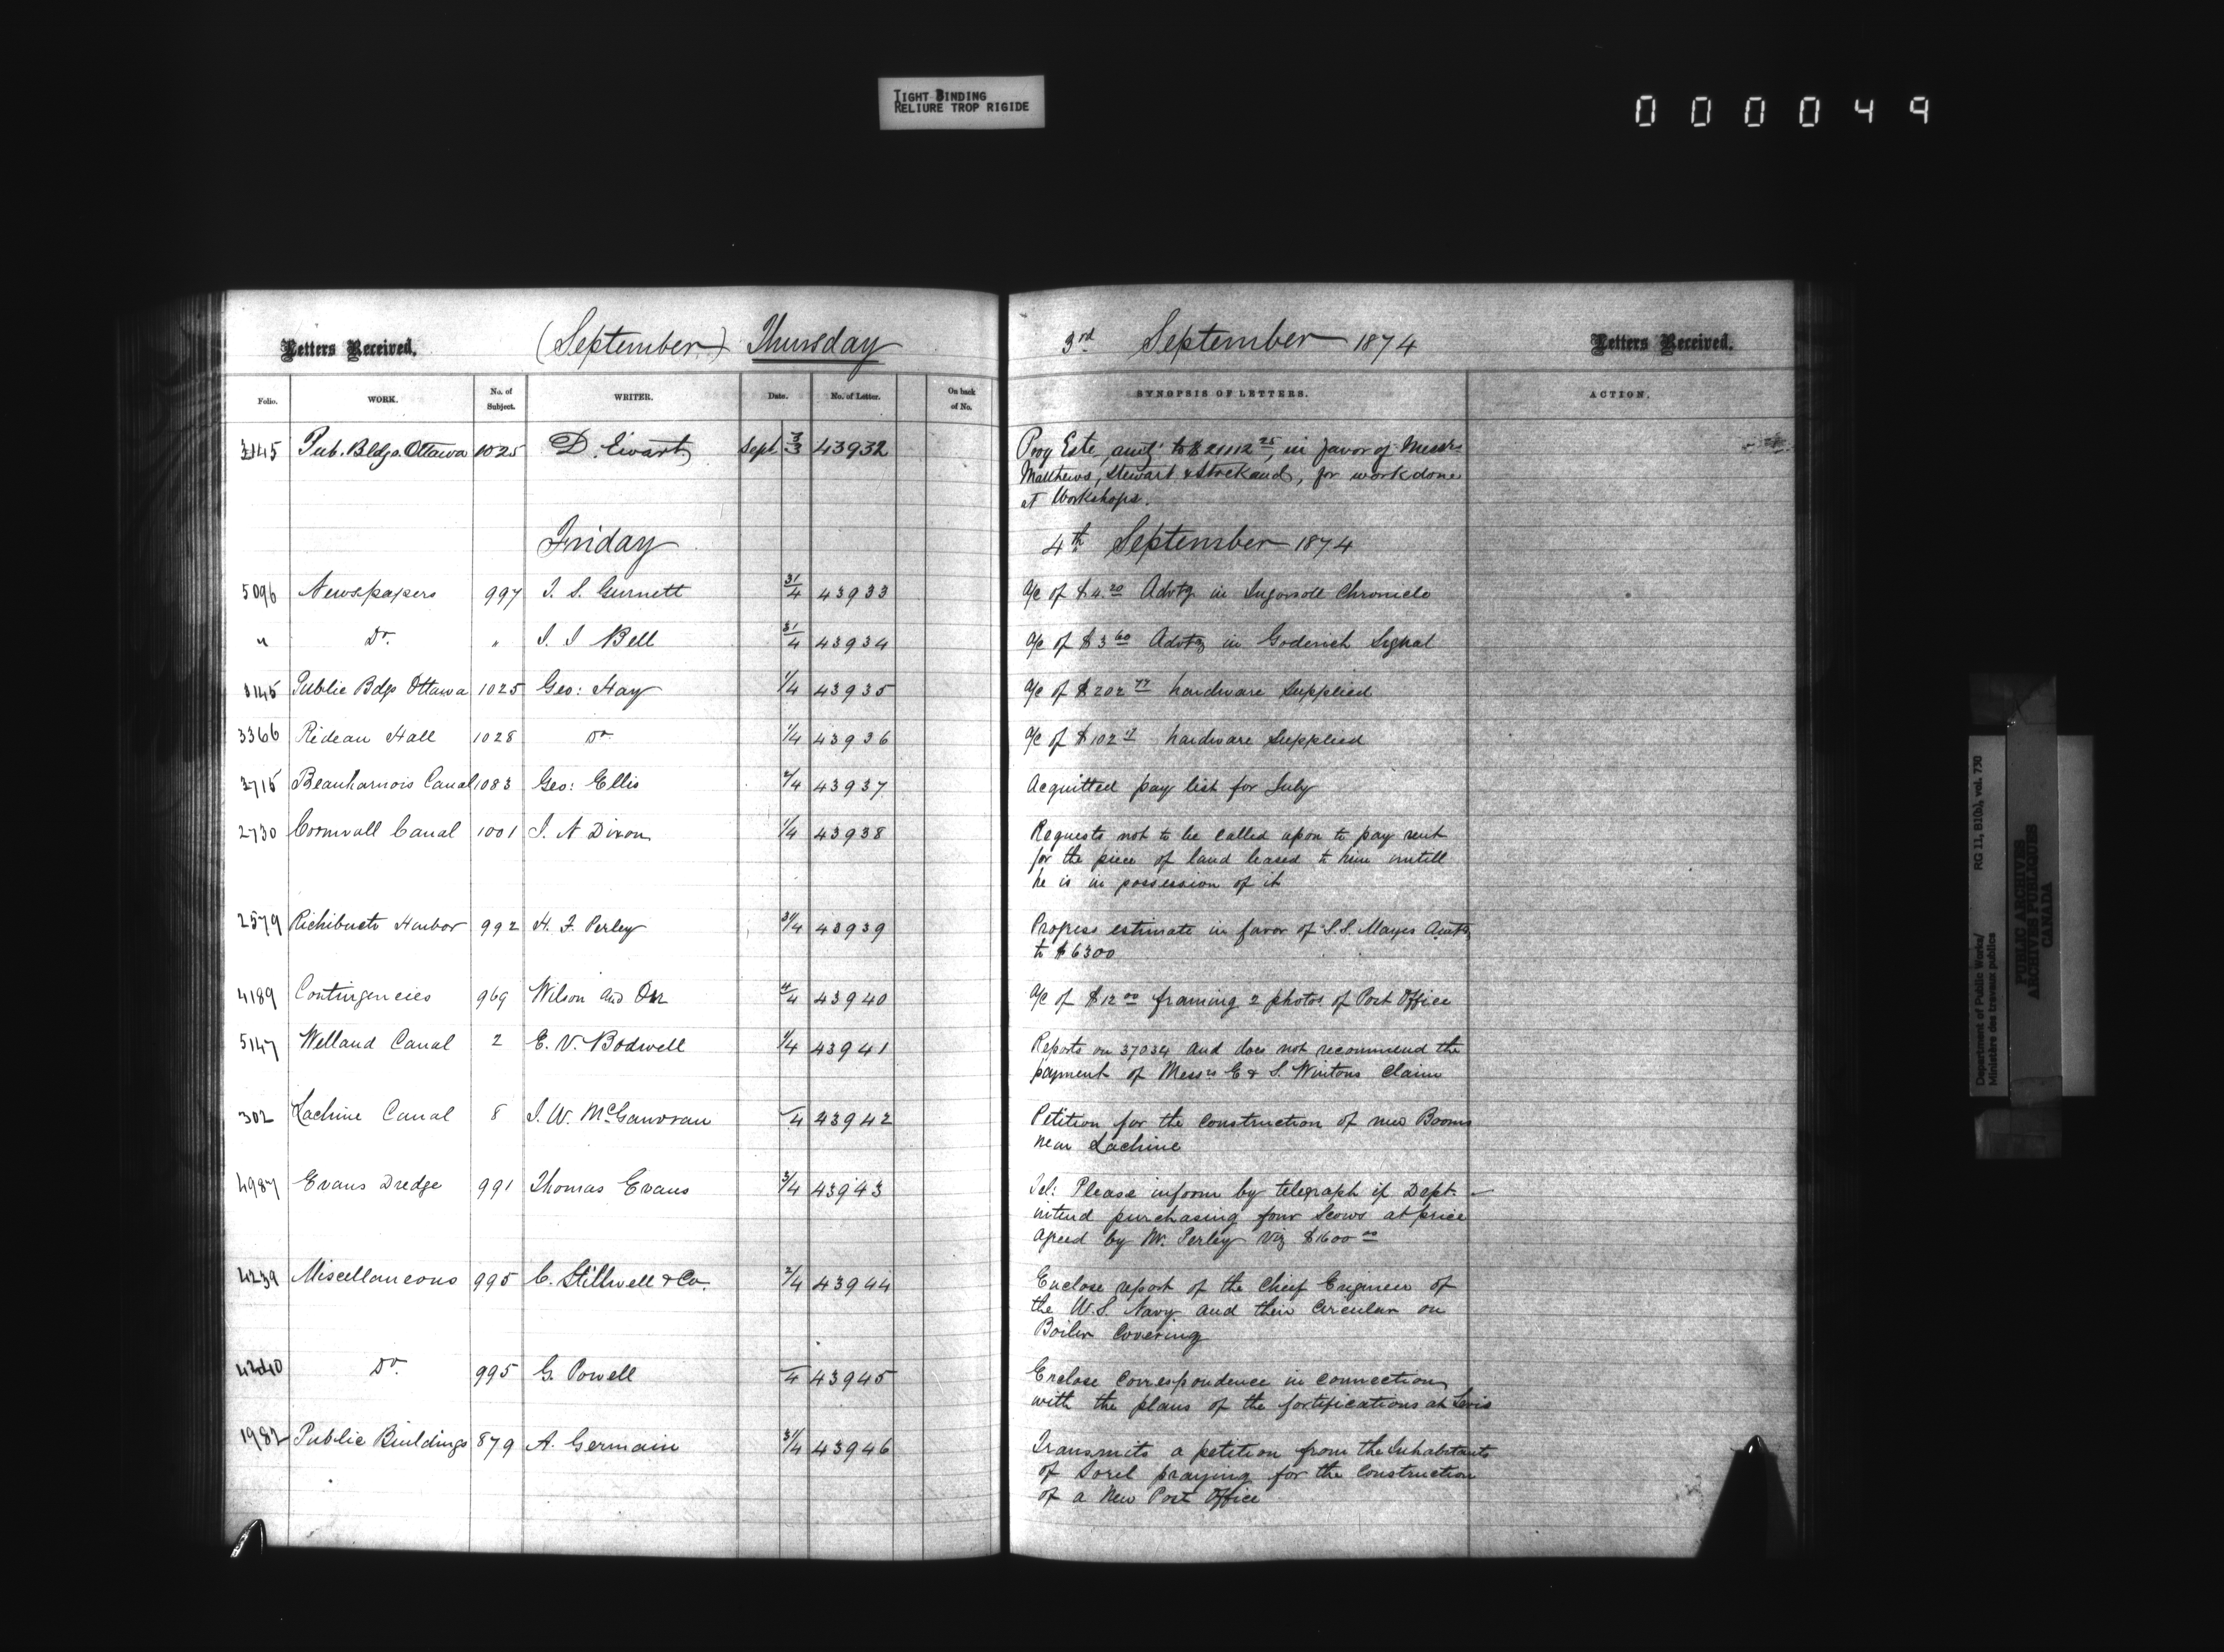 TIGHT BINDING
RELIURE TROP RIGIDE
000049
Letters Received. (September) Thursday 3rd September 1874 Letters Received.
Folio. WORK. No. of Subject. WRITER. Date. No. of Letter. On back of No. SYNOPSIS OF LETTERS. ACTION.
3145 Pub. Bldgs. Ottawa 1025 D. Ewart Sept 3/3 43932 Prog Este, amtg to $ 21112 25, in favor of Messrs
Matthews, Stewart & Strickand, for work done
at Workshops.
Friday 4th September 1874
5096 Newspapers 997 J. S. Gurnett 31/4 43933 a/c of $4.20 Advtg in Ingersoll Chronicle
" Do. " J. J Bell 31/4 43934 a/c of $3 60 Advtg in Goderich Signal
3145 Public Bdgs Ottawa 1025 Geo: Hay 1/4 43935 a/c of $202 77 hardware Supplied
3366 Rideau Hall 1028 Do 1/4 43936 a/c of $102 hardware Supplied
3715 Beauharnois Canal 1083 Geo: Ellis 2/4 43937 Acquitted pay list for July
2730 Cornwall Canal 1001 J. N Dixon 1/4 43938 Requests not to be called upon to pay rent
for the piece of land leased to him untill
he is in possession of it
2579 Richibucto Harbor 992 H. F. Perley 31/4 43939 Progress estimate in favor of S. S. Mayes Amtg
to $6300
4189 Contingencies 969 Wilson and Orr 4/4 43940 a/c of $12 00 framing 2 photos of Post Office
5147 Welland Canal 2 E. V. Bodwell 1/4 43941 Reports on 37034 and does not recommend the
payment of Messrs E & S. Wintons Claim
302 Lachine Canal 8 J. W. McGauvran /4 43942 Petition for the construction of new Booms
near Lachine
4987 Evans Dredge 991 Thomas Evans 3/4 43943 Tel: Please inform by telegraph if Dept.
intend purchasing four Scows at price
agreed by Mr. Perley viz $1600 00
4239 Miscellaneous 995 C. Stillwell & Co. 2/4 43944 Enclose report of the Chief Engineer of
the U.S. Navy and their Circular on
Boiler Covering
4240 Do. 995 G. Powell /4 43945 Enclose Correspondence in connection
with the plans of the fortifications at Levis
1982 Public Buildings 879 A. Germain 31/4 43946 Transmits a petition from the Inhabitants
of Sorel praying for the Construction
of a New Post Office
Department of Public Works/ RG 11, B1(b), vol. 730
Ministère des travaux publics
PUBLIC ARCHIVES
ARCHIVES PUBLIQUES
CANADA